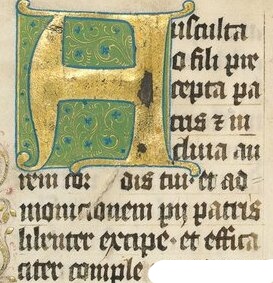 Ausculta
o fili pre
cepta pa
tris ⁊ in
clina au
rem cor dis tui · et ad
monicionem pij patris
libenter excipe · et effica
citer comple